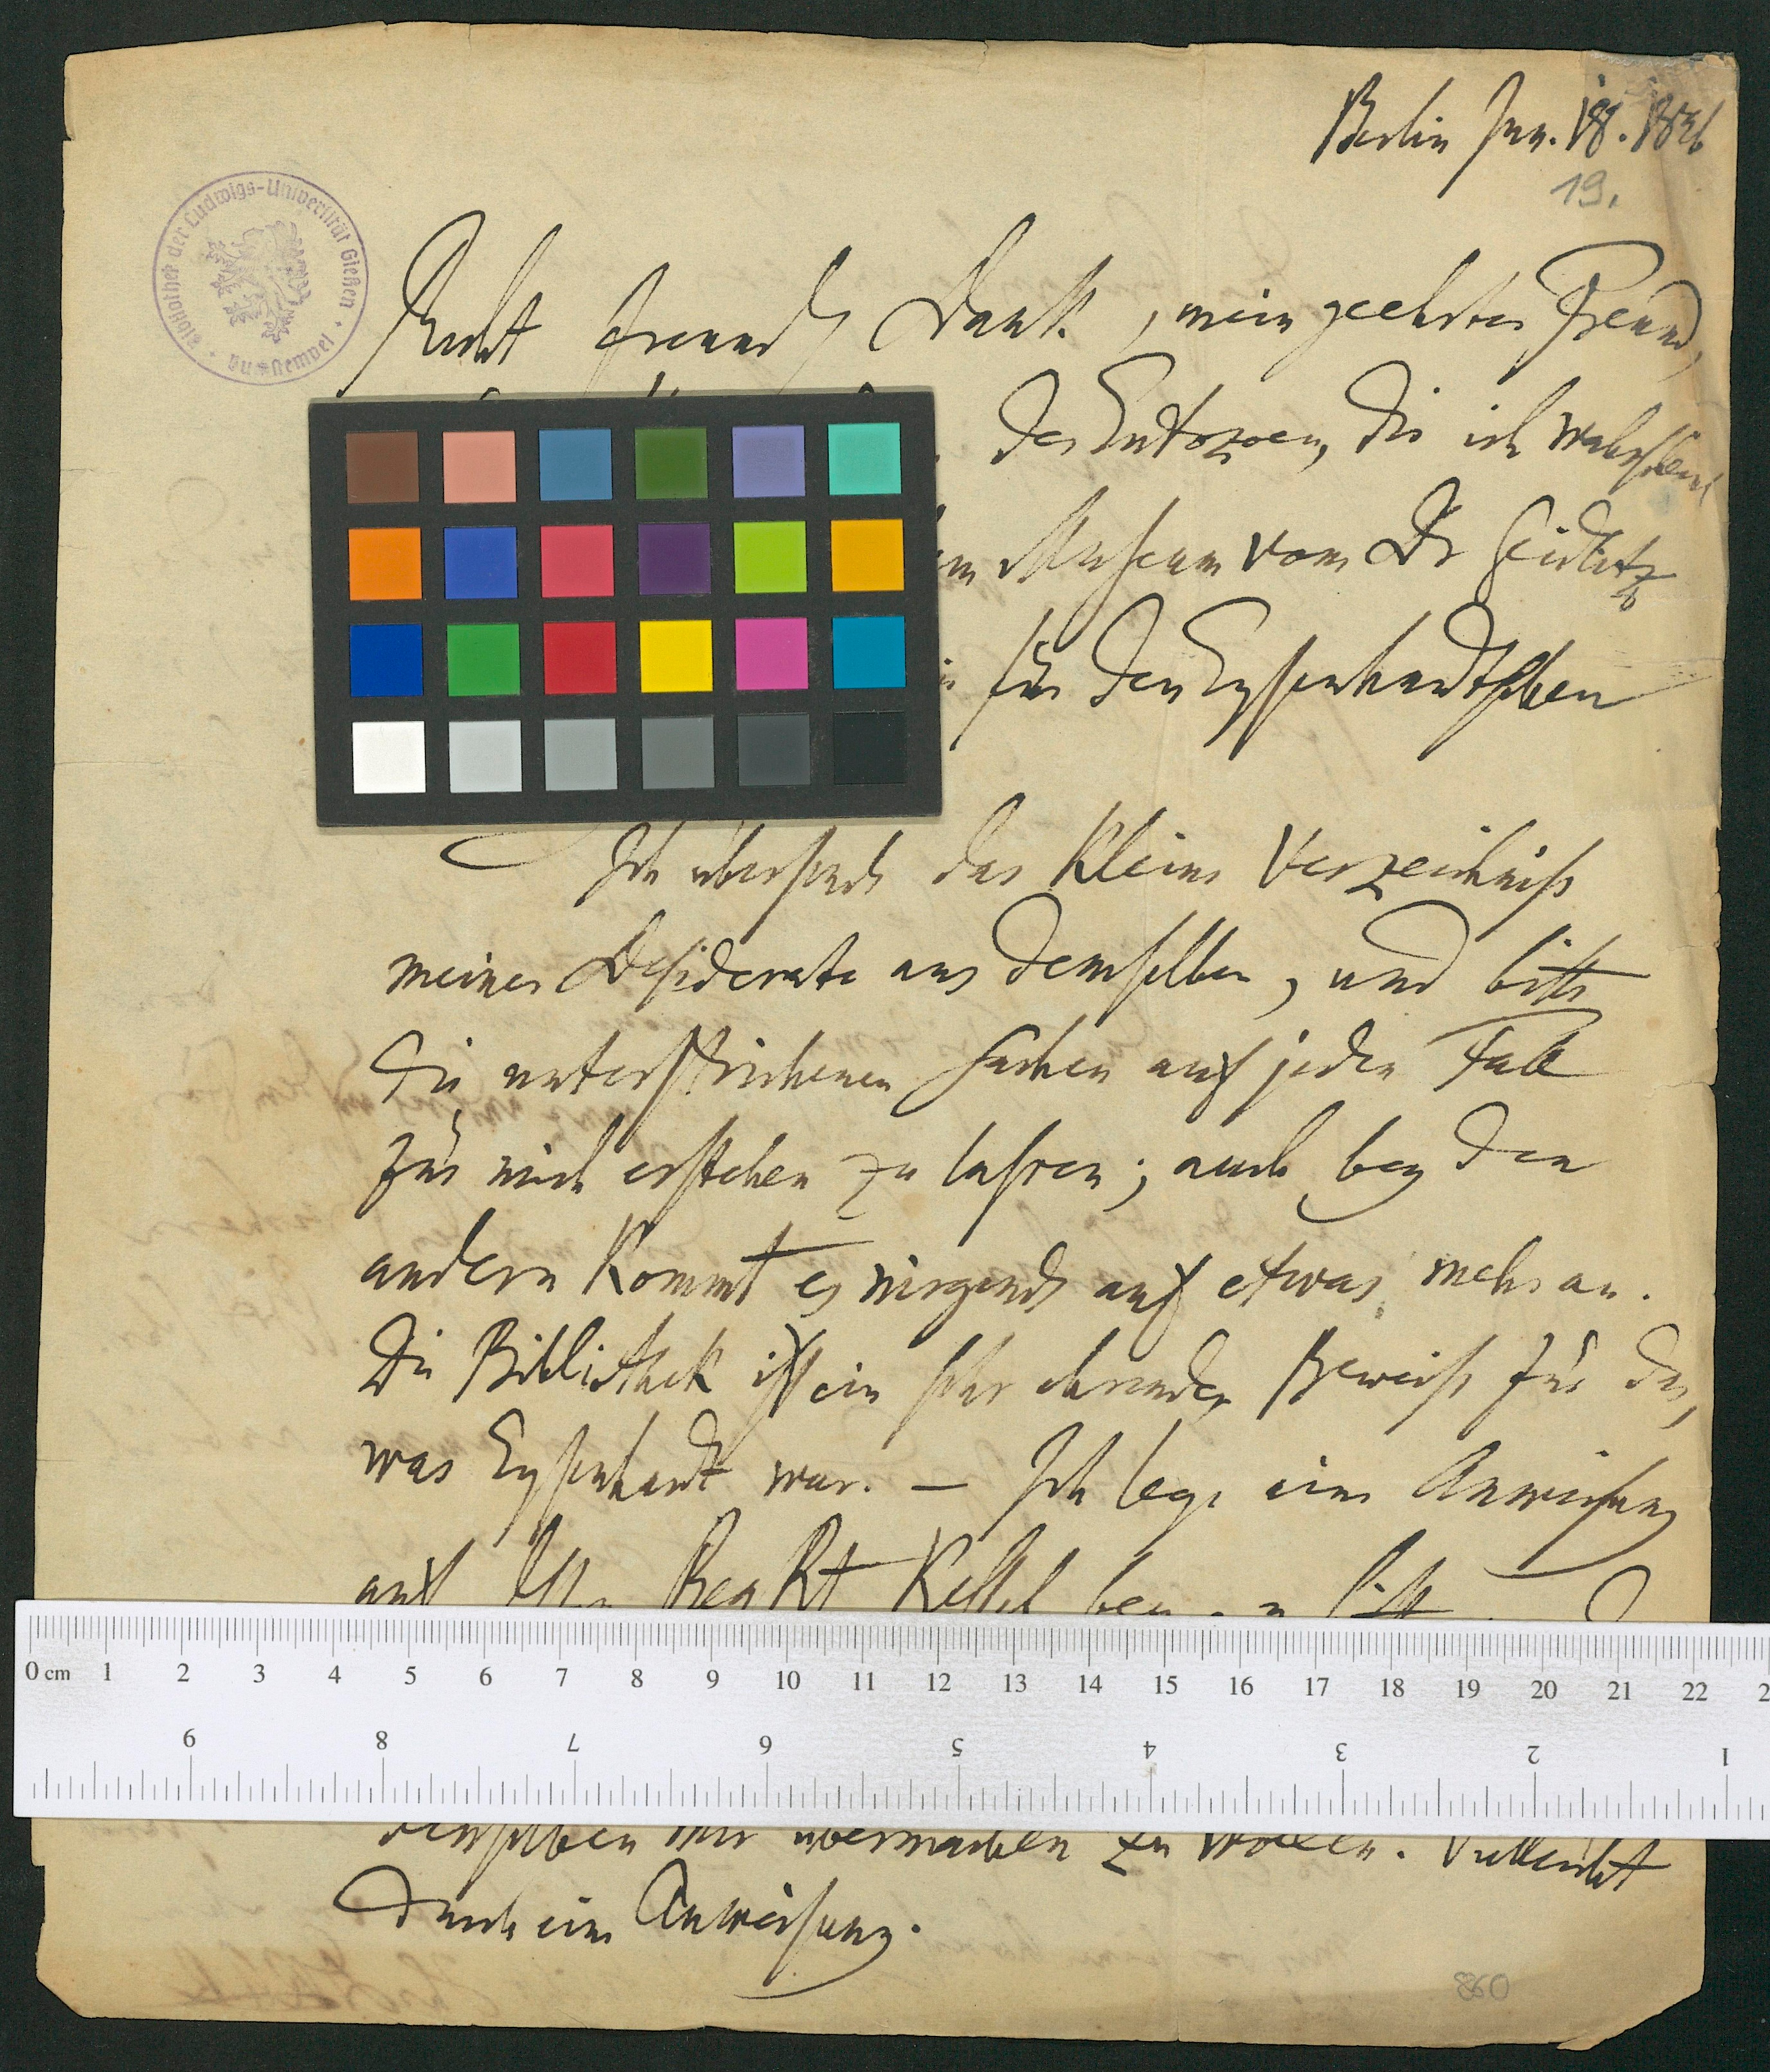 Berlin Jan. 18. 1826
19.
Bibliothek der Ludwigs-Universität Gießen
Recht freundl Dank, mein geehrter Freund,
der Entozoen, die ich
Museum vom Dr Seidlitz
für den Eysenhardtschen
Ich übersende das kleine Verzeichniß
meiner Desiderate aus demselben, und bitte
die unterstrichenen Sachen auf jeden Fall
für mich erstehen zu lassen; auch bey den
andern kommt es nirgends auf etwas mehr an.
Die Bibliothek ist ein sehr ehrender Beweiß für das,
was Eysenhardt war. – Ich lege eine Anweisung
auf
0 cm 1 2 3 4 5 6 7 8 9 10 11 12 13 14 15 16 17 18 19 20 21 22 2
9 8 7 6 5 4 3 2 1
denselben mir übermachen zu wollen. Vielleicht
durch eine Anweisung.